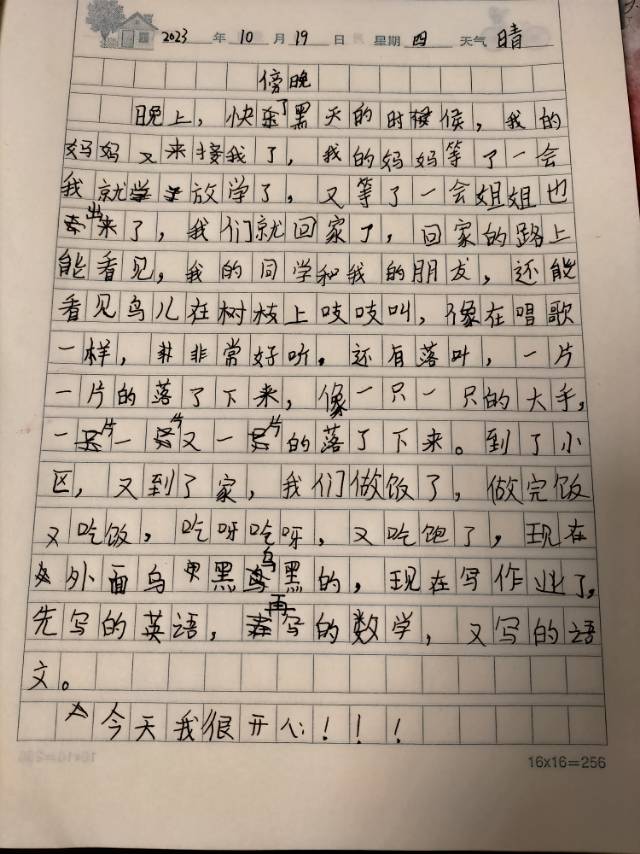 2023 年 10 月 19 日 星期 四 天气 晴
傍晚
晚上，快到了黑天的时候，我的
妈妈又来接我了，我的妈妈等了一会
我就放学了，又等了一会姐姐也
出来了，我们就回家了，回家的路上
能看见，我的同学和我的朋友，还能
看见鸟儿在树枝上吱吱叫，像在唱歌
一样，非常好听。还有落叶，一片
一片的落了下来，像一只一只的大手，
一片一片又一片的落了下来。到了小
区，又到了家，我们做饭了，做完饭
又吃饭，吃呀吃呀，又吃饱了，现在
外面乌黑乌黑的，现在写作业了，
先写的英语，再写的数学，又写的语
文。
今天我很开心！！！
16x16=256